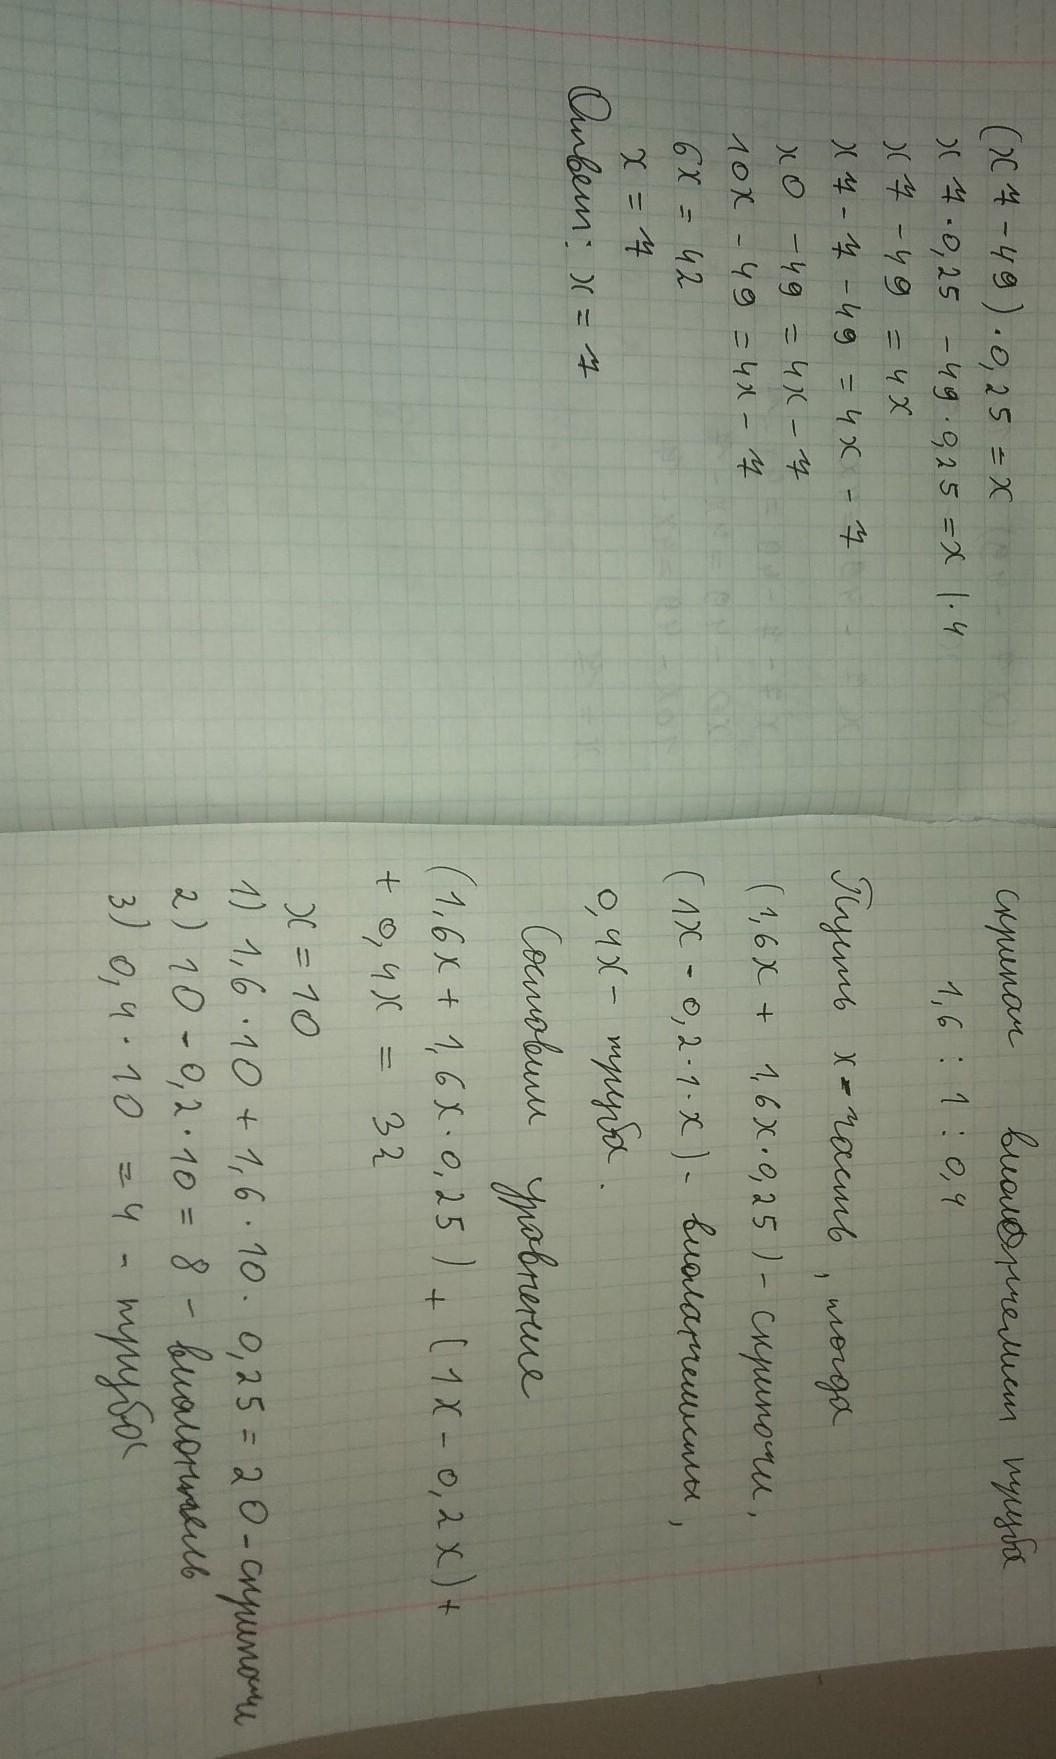 (x7-49)·0,25=x
x7·0,25-49·0,25=x |·4
x7-49=4x
x7-7-49=4x-7
x0-49=4x-7
10x-49=4x-7
6x=42
x=7
Ответ: x=7
скрипач виолончелист труба
1,6 : 1 : 0,4
Пусть x-часть, тогда
(1,6x + 1,6x·0,25)-скрипачи,
(1x-0,2·1·x)-виоланчелисты,
0,4x-труба.
Составим уравнение
(1,6x+1,6x·0,25)+(1x-0,2x)+
+0,4x=32
x=10
1) 1,6·10+1,6·10·0,25=20-скрипачи
2) 10-0,2·10=8-виолончель
3) 0,4·10=4-труба